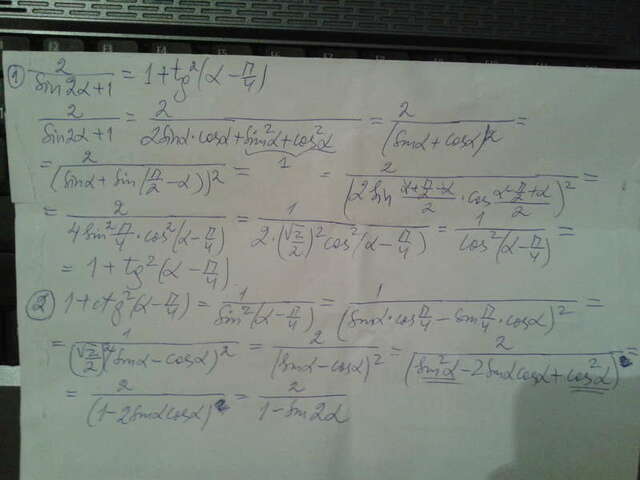 ① 2/(sin2α+1) = 1+tg²(α-π/4)
2/(sin2α+1) = 2/(2sinα·cosα+sin²α+cos²α) = 2/(sinα+cosα)² =
1
= 2/(sinα+sin(π/2-α))² = = 2/(2sin (α+π/2-α)/2 · cos (α-π/2+α)/2)² =
= 2/(4sin²π/4·cos²(α-π/4)) = 1/(2·(√2/2)²cos²(α-π/4)) = 1/cos²(α-π/4) =
= 1+tg²(α-π/4)
② 1+ctg²(α-π/4) = 1/sin²(α-π/4) = 1/(sinα·cosπ/4-sinπ/4·cosα)² =
= 1/((√2/2)²(sinα-cosα)²) = 2/(sinα-cosα)² = 2/(sin²α-2sinαcosα+cos²α) =
= 2/(1-2sinαcosα) = 2/(1-sin2α)